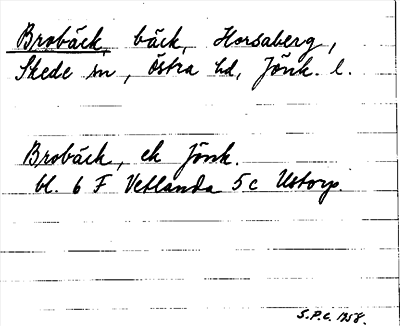 Brobäck, bäck, Horsaberg,
Skede sn, Östra hd, Jönk. l.
Brobäck, ek Jönk.
bl. 6 F Vetlanda 5c Ustorp.
S.P.C. 1958.